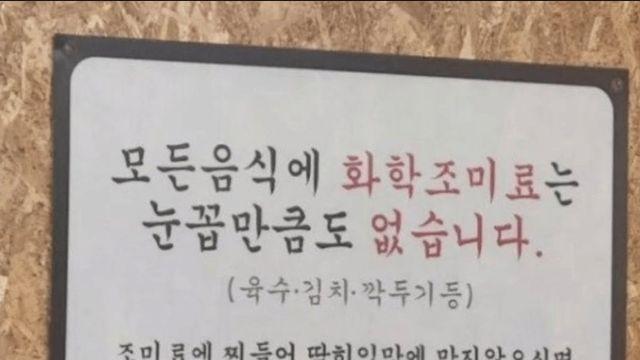 모든음식에 화학조미료는
눈꼽만큼도 없습니다.
(육수·김치·깍두기등)
조미료에 찌들어 딱히입맛에 맞지않으시면